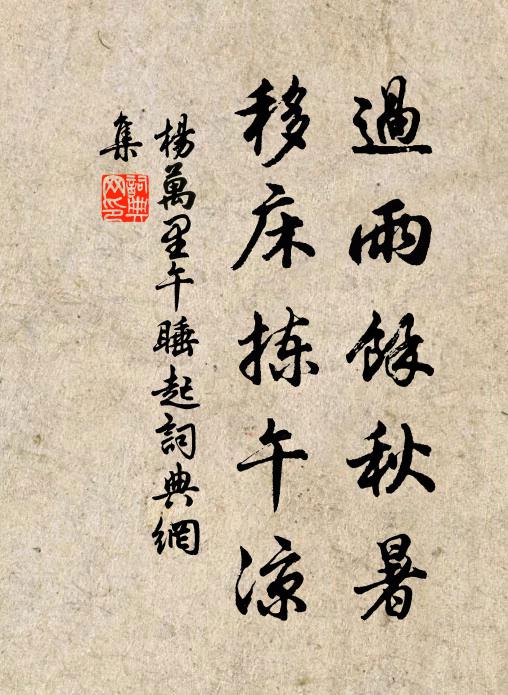 過雨餘秋暑
移床拣午涼
楊萬里午睡起詞典網
集
詞典网印